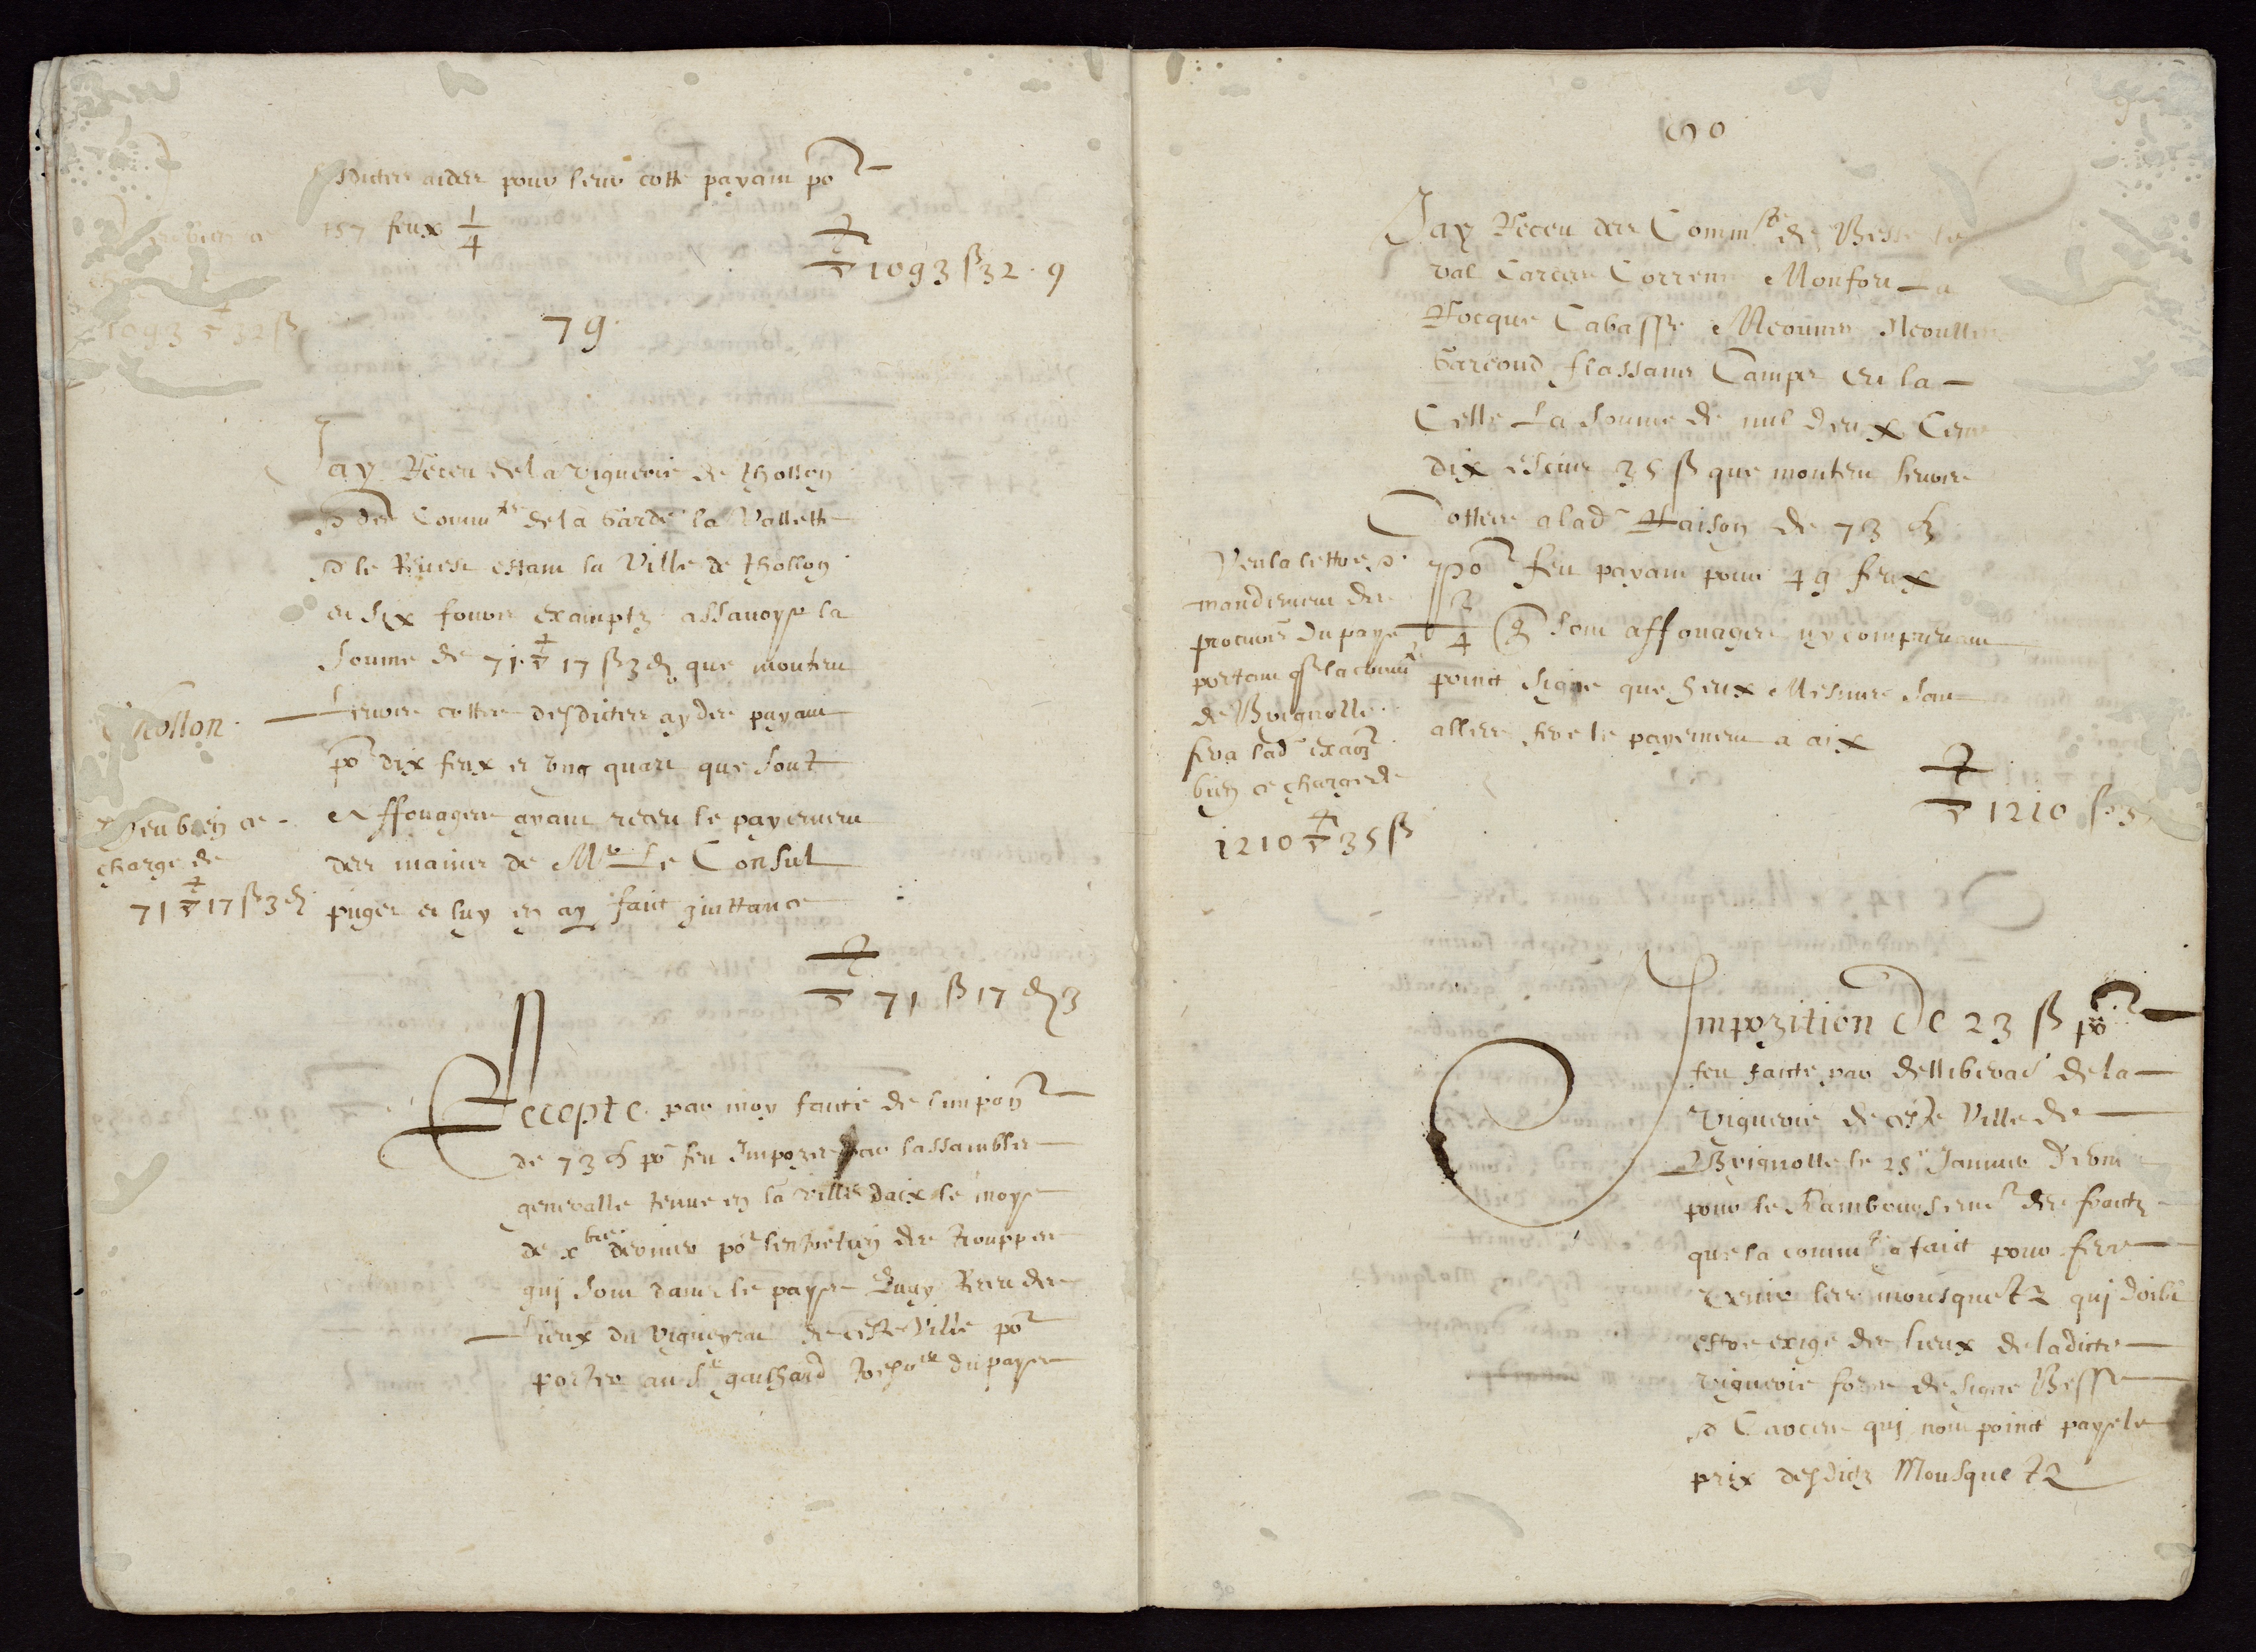 dictes aides pour leur cotte payant po^r
157 feux 1/4
1093 ß 32 . 9
1093 32 ß
79
Jay Receu de la viguerie de thollon
des Comm^tes de la Garde la Vallette
le Revest estant la Ville de thollon
et six fours examptz assavoyr la
Somme de 71 17 ß 3 d que montent
Thollon
leurs cottes desdictes aydes payant
po^r dix feux et ung quart que sont
veu bien ce
charge de
71 17 ß 3 d
Affouages ayant receu le payement
des mains de M^r le Consul
puget et luy en ay faict quittance
71 ß 17 d 3
Recepte par moy faicte de limpon^
de 73 ß po^r feu Impozes par lassamblee
generalle tenue en la ville daix le moys
de x^bre dernier po^r lentretien des trouppes
qui sont dans le pays Quay Receu des
lieux du vigueyrat de ceste Ville po^r
porter au S^r gailhard tres^rier du pays
80
Jay Receu des Comm^tes de Besse le
val Carces Correns Monfort La
Rocque Cabasse Meounes Neoulles
Gareoud flassans Camps et la
Celle La somme de mil deux Cens
dix escus 35 ß que montent leurs
Cottes a lad^ Raison de 73 ß
po^r feu payant pour 49 feux
3/4 sont affouages ny comprenant
point Signe que heux Mesmes sont
alles fere le payement a aix
Veu la lettre
mandement des
procureurs du pays
portant q la comm^te
de Brignolle
fera lad^ exaon
bien ce charge de
1210 35 ß
1210 ß 35
Impozition De 23 ß po^r
feu faicte par delliberao^ de la
Viguerie de ceste Ville de
Brignolle le 25^e Janvier dernier
pour le Rambourcement des fraictz
que la comm^te a faict pour fere
venir les mousquetz qui doibt
estre exige des lieux de ladicte
viguerie fors de Signe Besse
Carces qui nont point paye le
prix desdictz Mousquetz